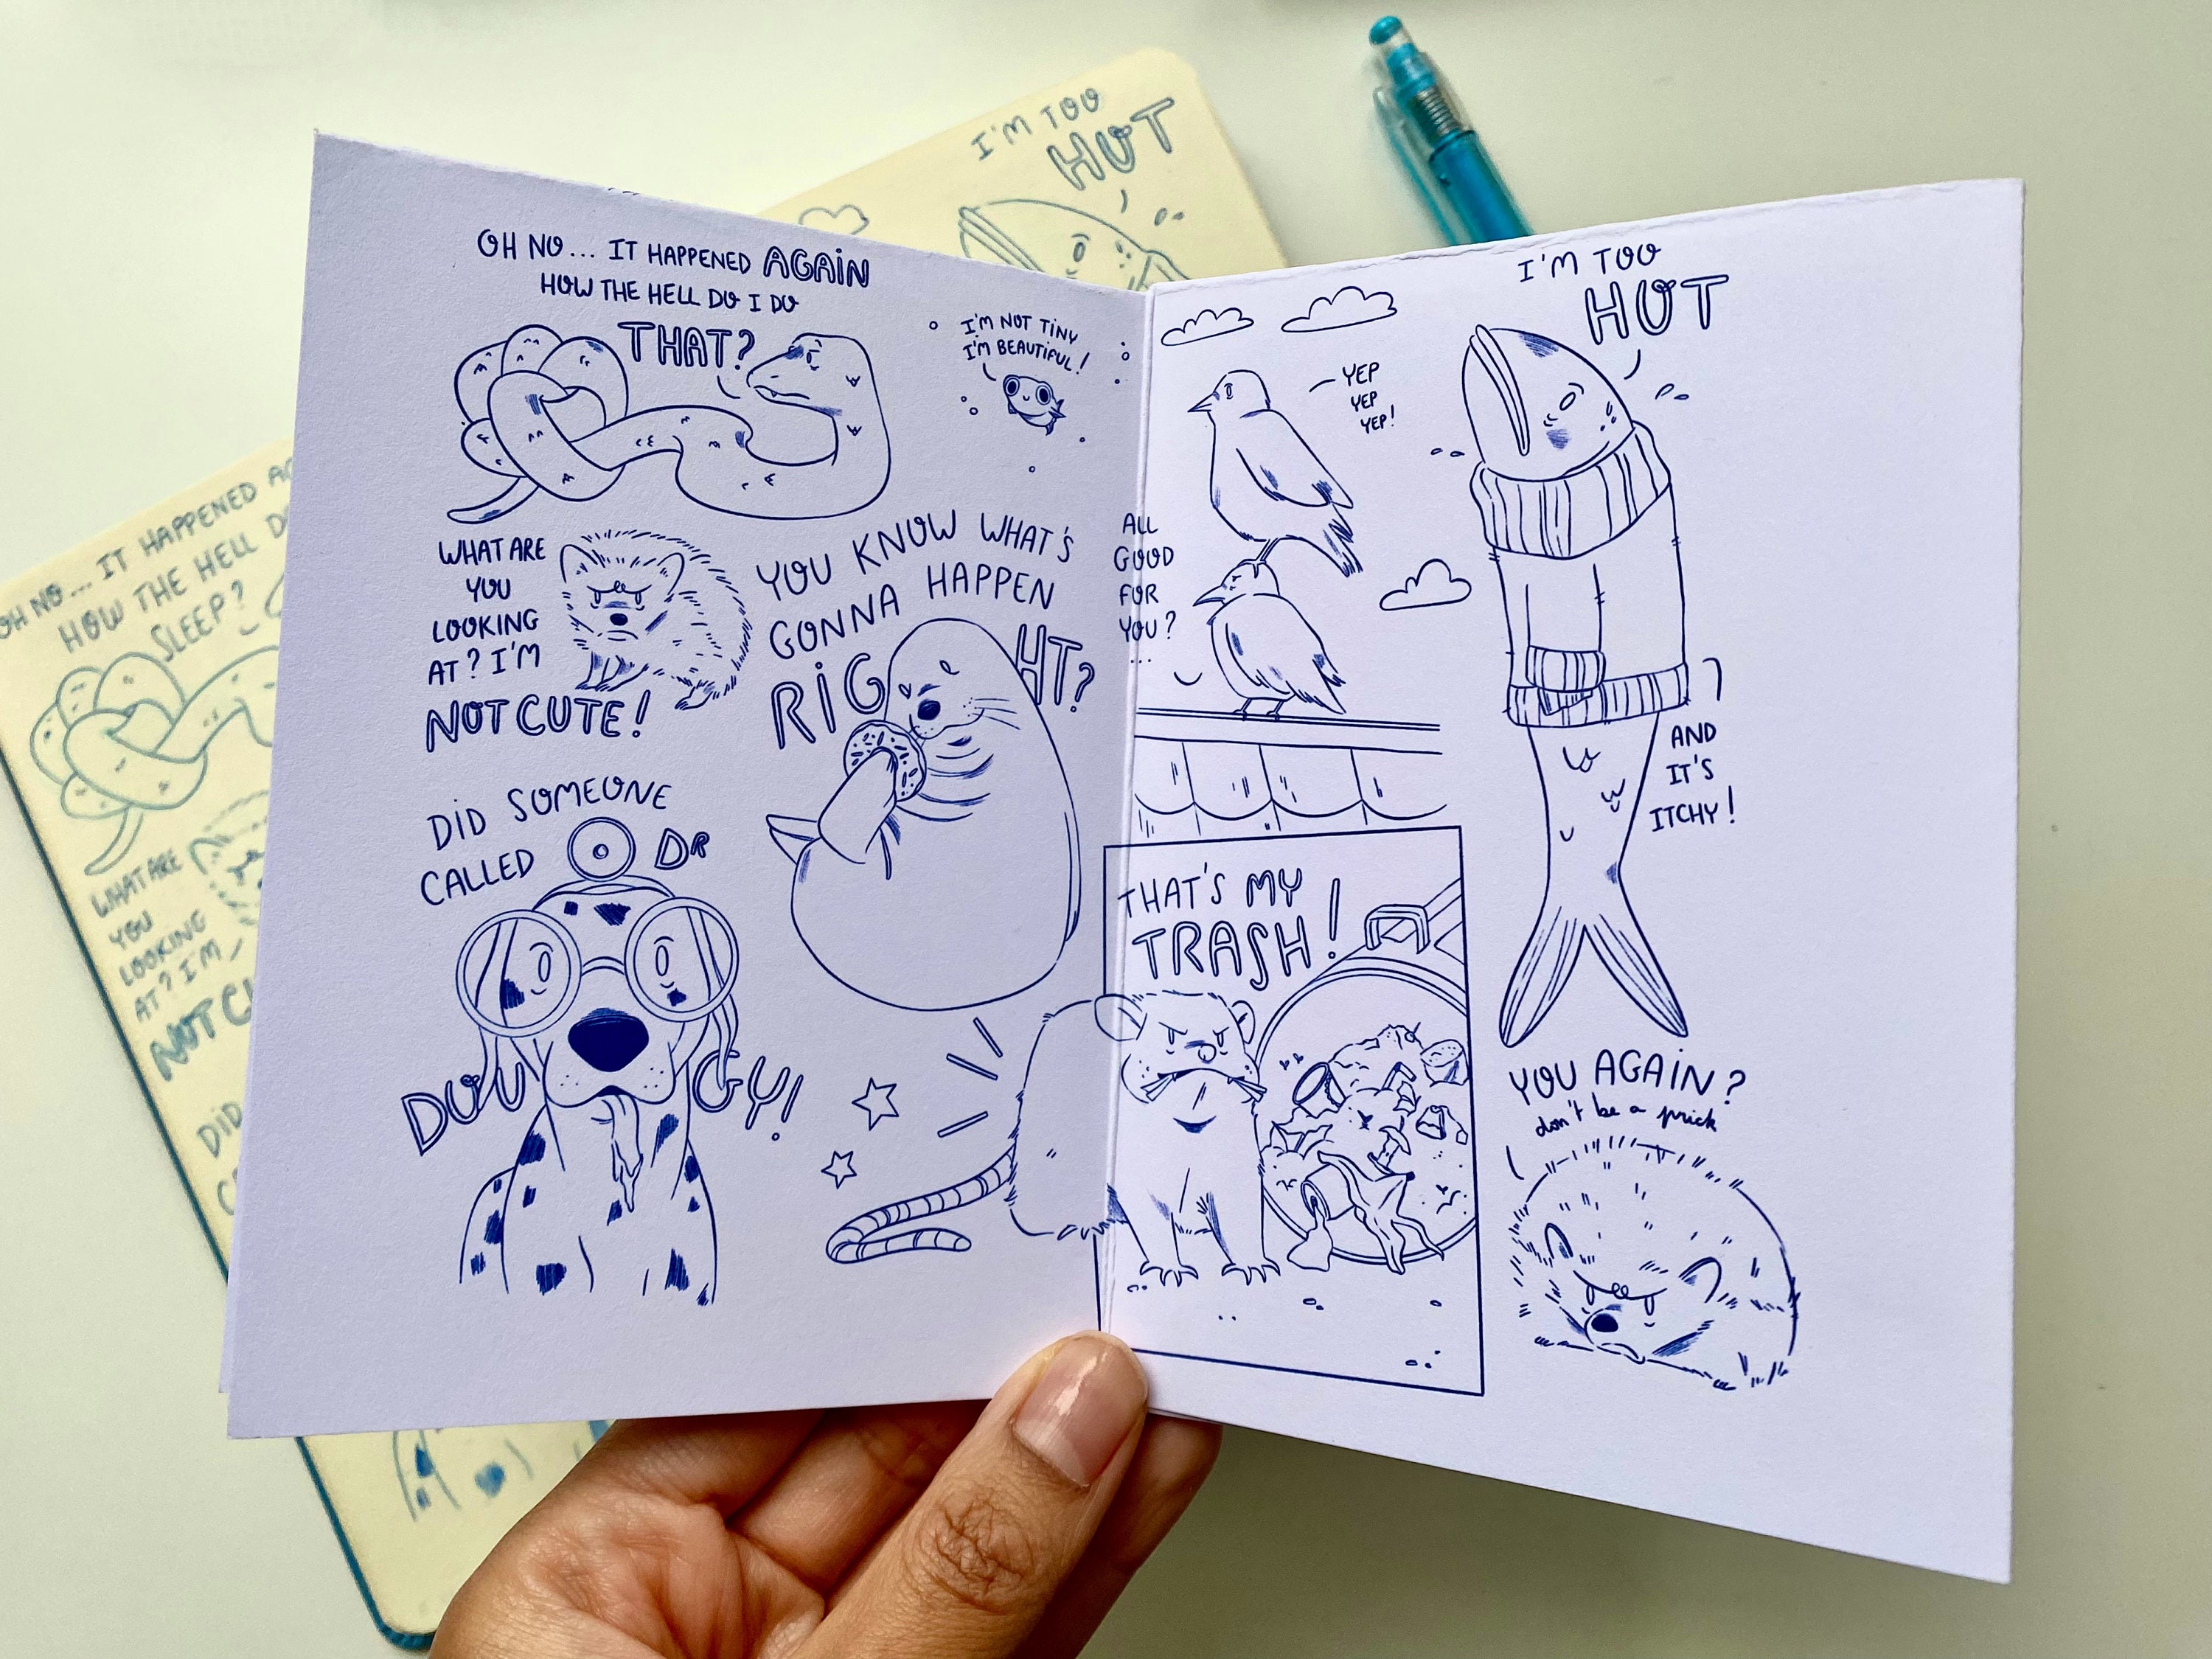 OH NO... IT HAPPENED AGAIN
HOW THE HELL DO I DO
THAT?
I'M NOT TINY
I'M BEAUTIFUL!
WHAT ARE
YOU
LOOKING
AT? I'M
NOT CUTE!
YOU KNOW WHAT'S
GONNA HAPPEN
RIGHT?
DID SOMEONE
CALLED DR
DOUGY!
YEP
YEP
YEP!
ALL
GOOD
FOR
YOU?
...
I'M TOO
HOT
AND
IT'S
ITCHY!
THAT'S MY
TRASH!
YOU AGAIN?
don't be a prick
I'M TOO
HOT
OH NO... IT HAPPENED
HOW THE HELL
SLEEP?
WHAT ARE
YOU
LOOKING
AT? I'M
NOT
DID